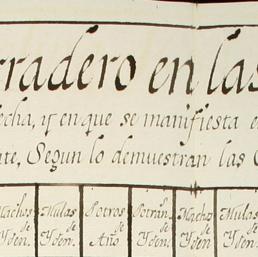 rradero en las
echa, y en que se manifiesta e
te, Segun lo demuestran las
Machos de Yden. Mulas de Yden. Potros de Año Potran.s de Yden. Macho de Yden Mulas de Yden